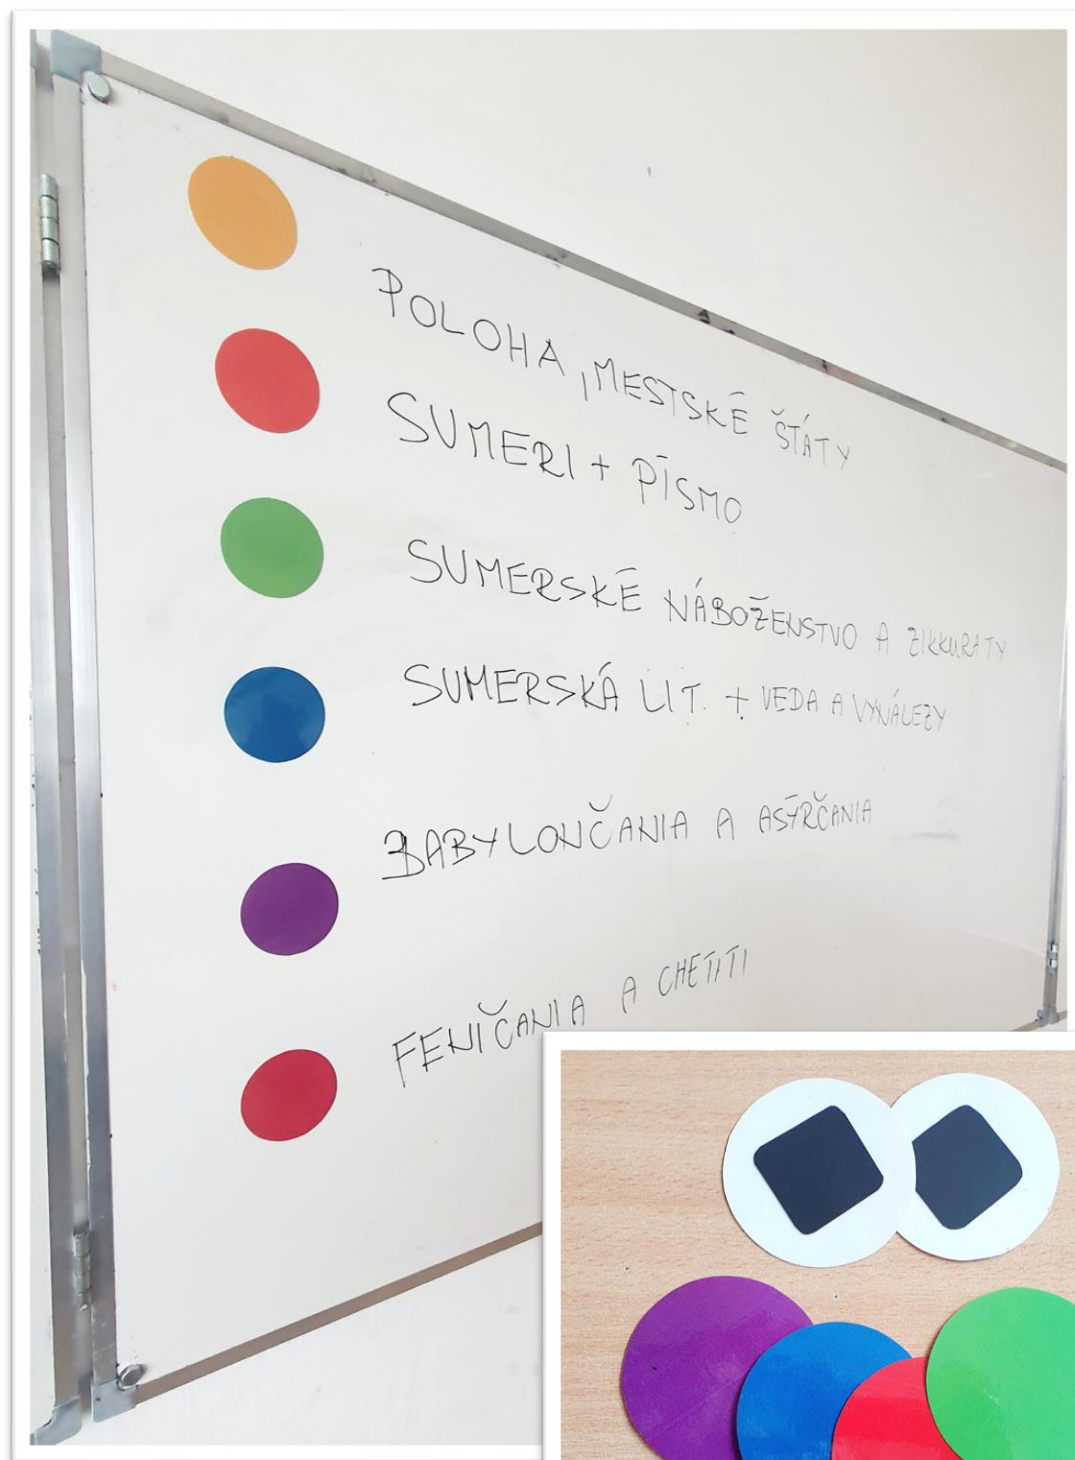 POLOHA, MESTSKÉ ŠTÁTY
SUMERI + PÍSMO
SUMERSKÉ NÁBOŽENSTVO A ZIKKURATY
SUMERSKÁ LIT. + VEDA A VYNÁLEZY
BABYLONČANIA A ASÝRČANIA
FENIČANIA A CHETITI